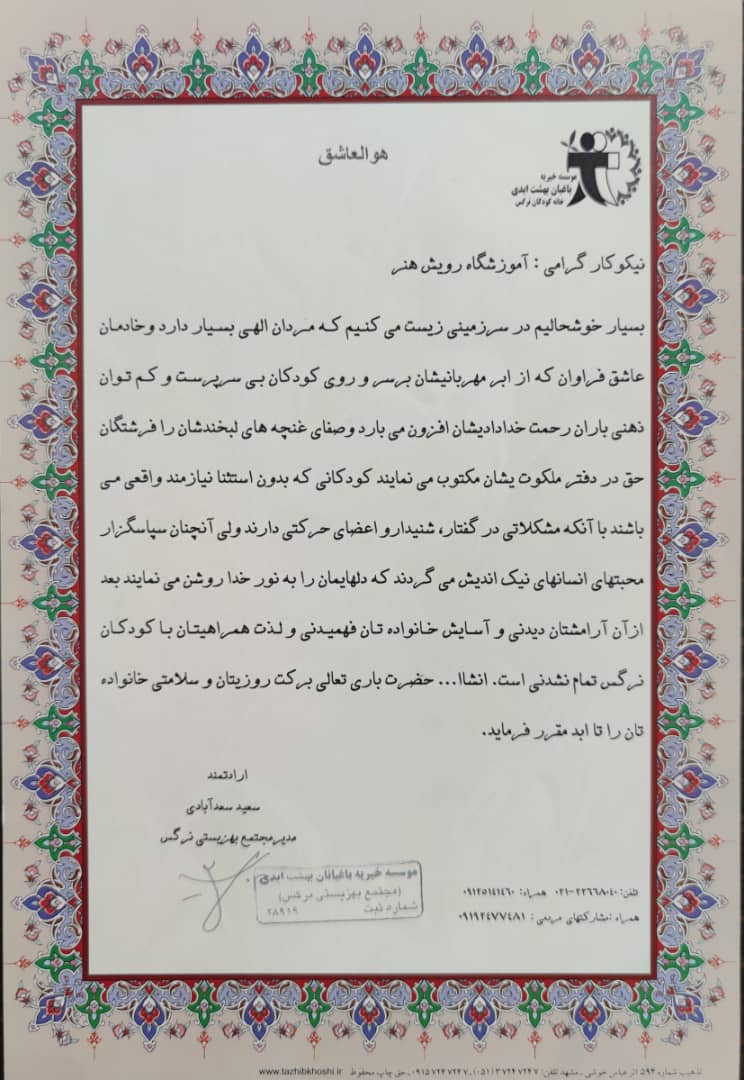 هوالعاشق
موسسه خیریه
باغبان بهشت ابدی
خانه کودکان نرگس
نیکوکار گرامی : آموزشگاه رویش هنر
بسیار خوشحالیم در سرزمینی زیست می کنیم که مردان الهی بسیار دارد وخادمان
عاشق فراوان که از ابر مهربانیشان برسر و روی کودکان بی سرپرست و کم توان
ذهنی باران رحمت خدادادیشان افزون می بارد وصفای غنچه های لبخندشان را فرشتگان
حق در دفتر ملکوت یشان مکتوب می نمایند کودکانی که بدون استثنا نیازمند واقعی می
باشند با آنکه مشکلاتی در گفتار، شنیدارو اعضای حرکتی دارند ولی آنچنان سپاسگزار
محبتهای انسانهای نیک اندیش می گردند که دلهایمان را به نور خدا روشن می نمایند بعد
ازآن آرامشتان دیدنی و آسایش خانواده تان فهمیدنی و لذت همراهیتان با کودکان
نرگس تمام نشدنی است. انشاا... حضرت باری تعالی برکت روزیتان و سلامتی خانواده
تان را تا ابد مقرر فرماید.
ارادتمند
سعید سعدآبادی
مدیرمجتمع بهزیستی نرگس
موسسه خیریه باغبانان بهشت ابدی
(مجتمع بهزیستی نرگس)
شماره ثبت ۲۸۹۱۹
تلفن: ۲۲۶۶۸۰۴۰-۰۲۱ همراه: ۰۹۱۲۵۱۴۱۴۶۰
همراه :مشارکتهای مردمی : ۰۹۱۹۲۴۷۷۴۸۱
تذهیب شماره ۵۹۴ اثر عباس خوشی ـ مشهد تلفن: ۳۷۲۴۷۲۴۷ (۰۵۱) ـ ۰۹۱۵۷۲۴۷۲۴۷ ـ حق چاپ محفوظ www.tazhibkhoshi.ir